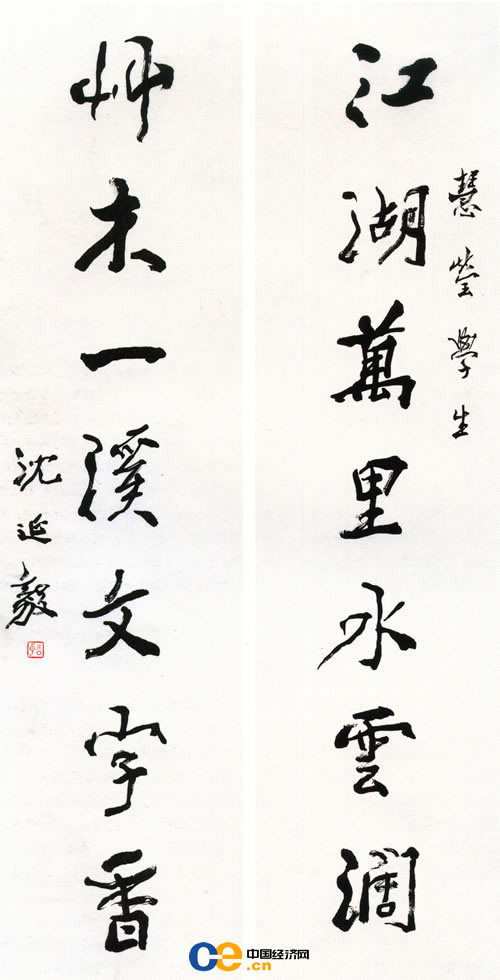 慧莹學生
江湖萬里水雲濶
艸木一溪文字香
沈延毅
中国经济网
ce.cn